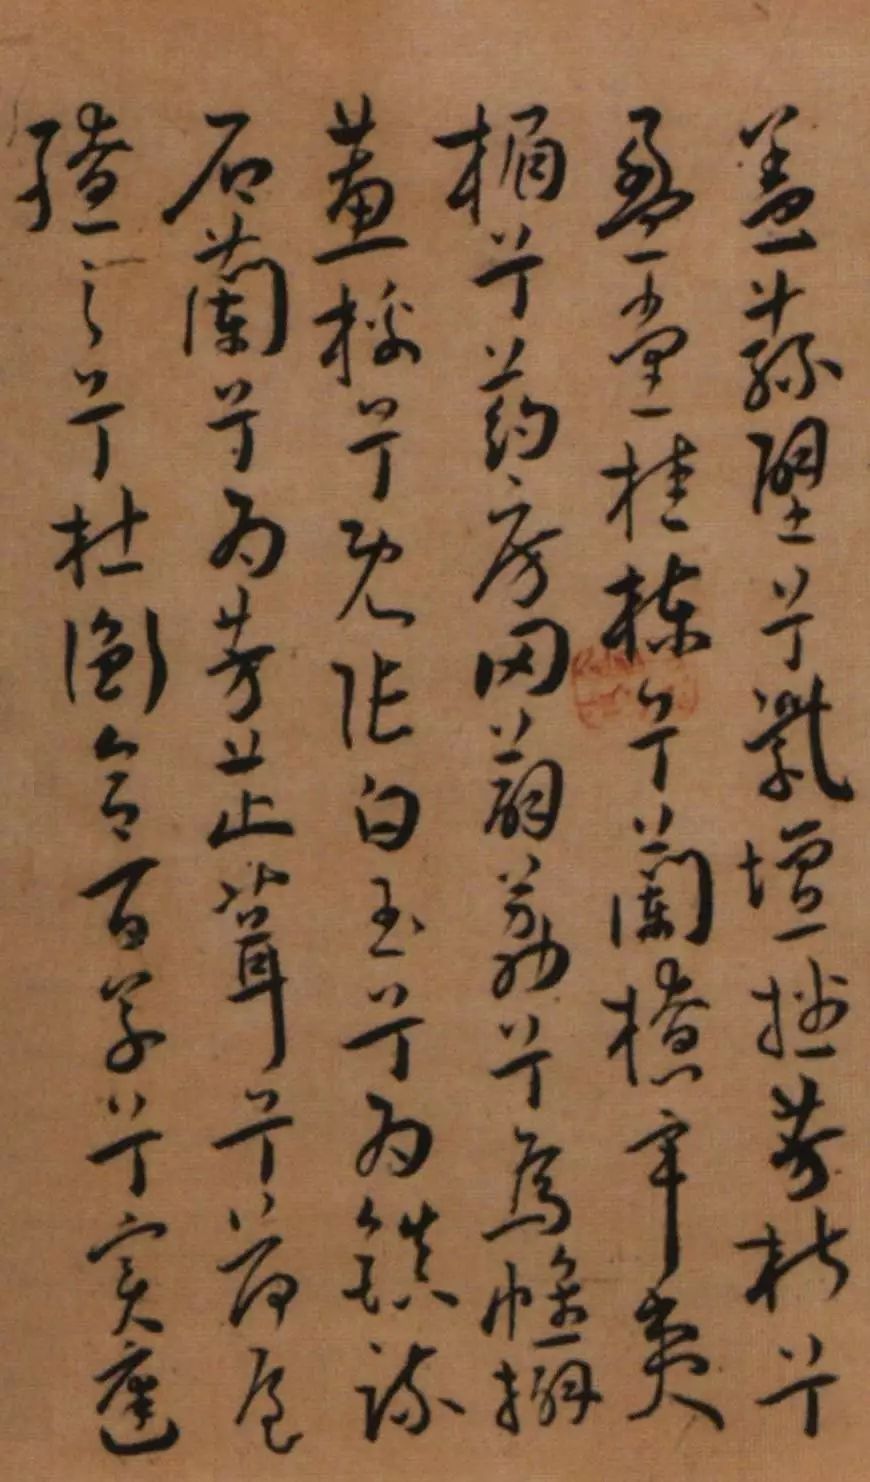 蓋蓀壁兮紫壇播芳椒兮
盈堂桂棟兮蘭橑辛夷
楣兮葯房罔薜荔兮為帷擗
蕙櫋兮既張白玉兮為鎮疏
石蘭兮為芳芷葺兮荷屋
繚之兮杜衡合百草兮實庭